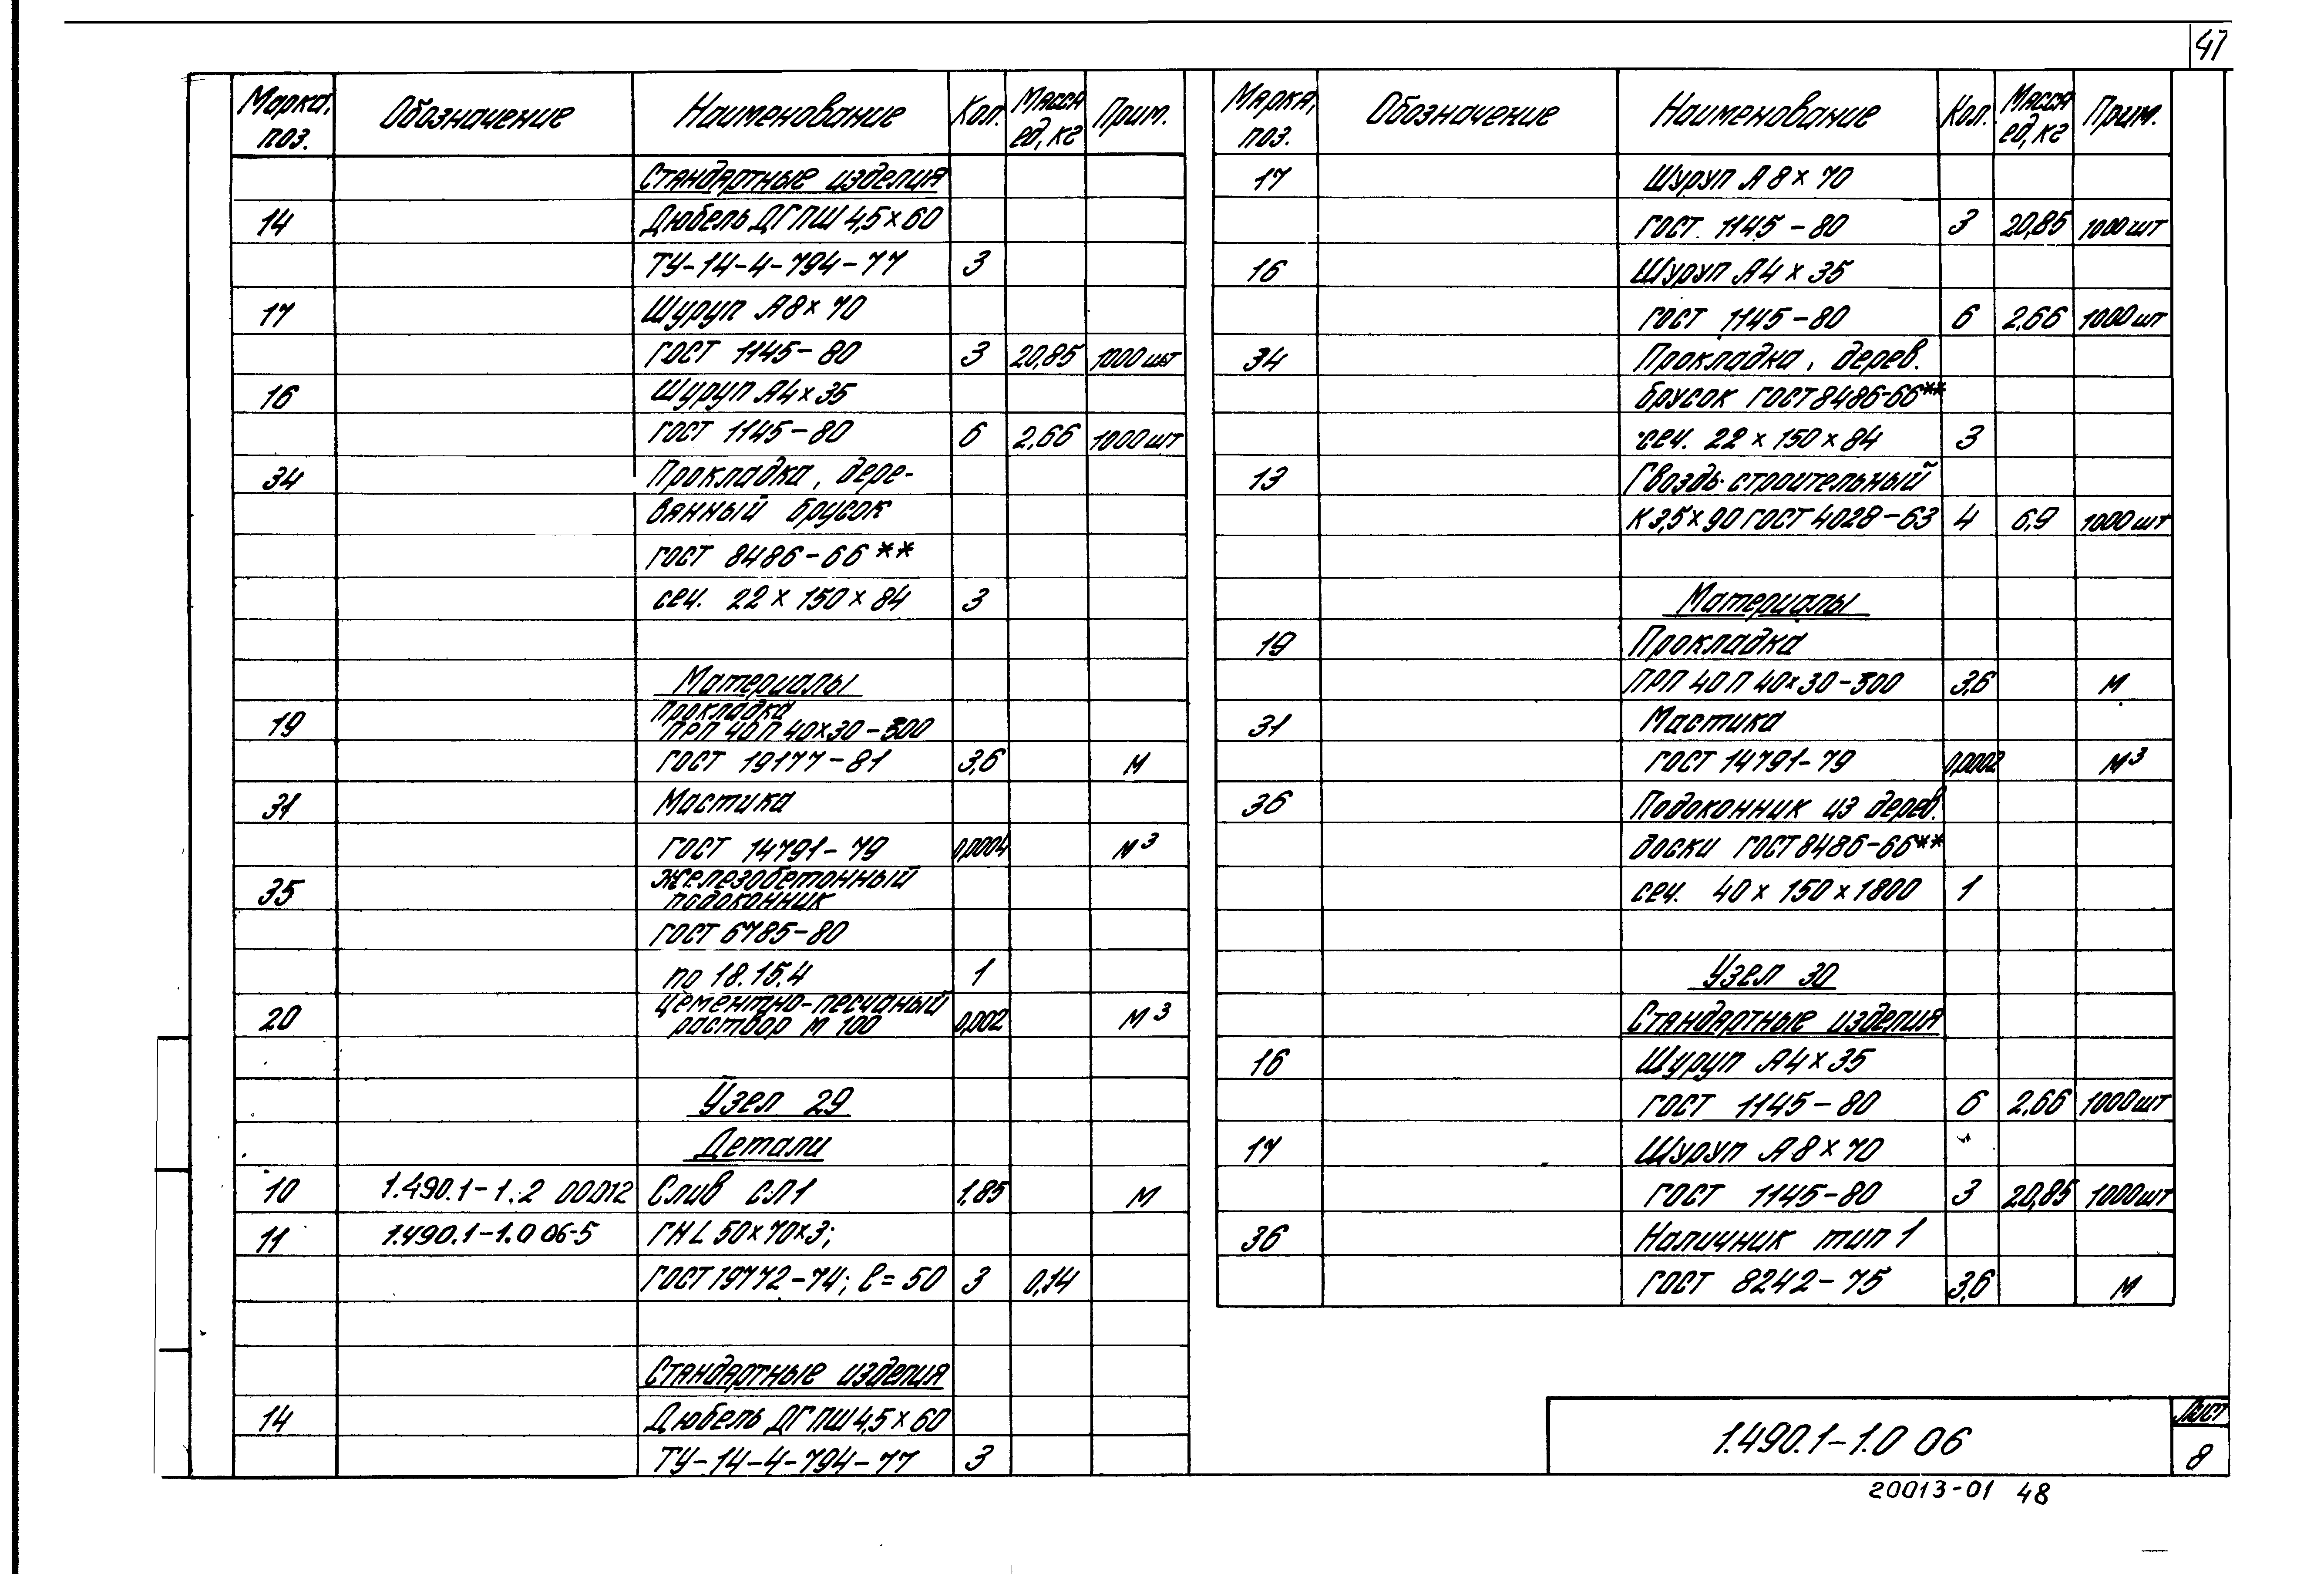 47
Марка, поз. Обозначение Наименование Кол. Масса ед, кг Прим.
Стандартные изделия
14 Дюбель ДГПШ 4,5×60
ТУ-14-4-794-77 3
17 Шуруп А8×70
ГОСТ 1145-80 3 20,85 1000 шт
16 Шуруп А4×35
ГОСТ 1145-80 6 2,66 1000 шт
34 Прокладка, дере-
вянный брусок
ГОСТ 8486-66**
сеч. 22×150×84 3
Материалы
19 Прокладка
ПРП 40П 40×30-300
ГОСТ 19177-81 3,6 м
31 Мастика
ГОСТ 14791-79 0,0004 м³
35 Железобетонный
подоконник
ГОСТ 6785-80
по 18.15.4 1
20 Цементно-песчаный
раствор М 100 0,002 м³
Узел 29
Детали
10 1.490.1-1.2 00012 Слив СЛ1 1,85 м
11 1.490.1-1.0 06-5 ГН L 50×70×3;
ГОСТ 19772-74; ℓ=50 3 0,14
Стандартные изделия
14 Дюбель ДГПШ 4,5×60
ТУ-14-4-794-77 3
Марка, поз. Обозначение Наименование Кол. Масса ед, кг Прим.
17 Шуруп А8×70
ГОСТ 1145-80 3 20,85 1000 шт
16 Шуруп А4×35
ГОСТ 1145-80 6 2,66 1000 шт
34 Прокладка, дерев.
брусок ГОСТ 8486-66**
сеч. 22×150×84 3
13 Гвоздь строительный
К 3,5×90 ГОСТ 4028-63 4 6,9 1000 шт
Материалы
19 Прокладка
ПРП 40П 40×30-300 3,6 м
31 Мастика
ГОСТ 14791-79 0,0002 м³
36 Подоконник из дерев.
доски ГОСТ 8486-66**
сеч. 40×150×1800 1
Узел 30
Стандартные изделия
16 Шуруп А4×35
ГОСТ 1145-80 6 2,66 1000 шт
17 Шуруп А8×70
ГОСТ 1145-80 3 20,85 1000 шт
36 Наличник тип 1
ГОСТ 8242-75 3,6 м
1.490.1-1.0 06
Лист
8
20013-01 48